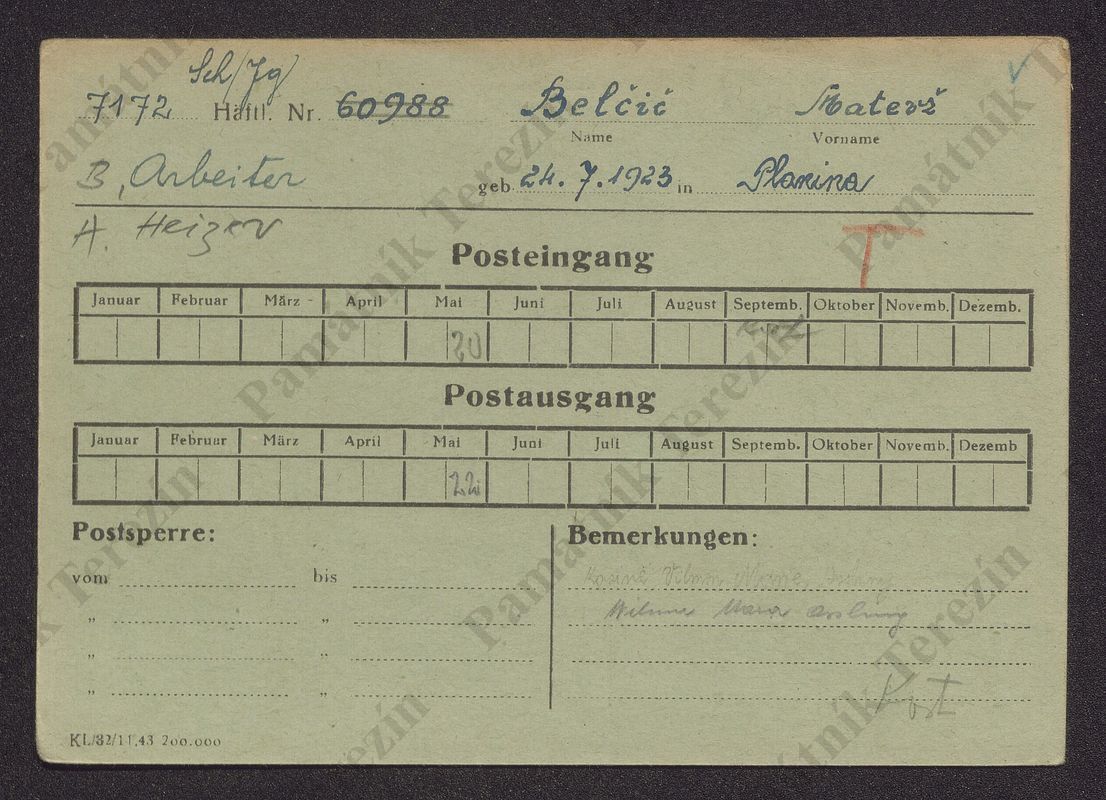 Sch/Jg/
7172 Häftl. Nr. 60988 Belčič Matevž
Name Vorname
B, Arbeiter geb. 24. 7. 1923 in Planina
A. Heizer
T
Posteingang
Januar Februar März April Mai Juni Juli August Septemb. Oktober Novemb. Dezemb.
20
Postausgang
Januar Februar März April Mai Juni Juli August Septemb. Oktober Novemb. Dezemb
22
Postsperre: Bemerkungen:
vom bis
" "
" "
" "
KL/32/11.43 200.000
Památník Terezín